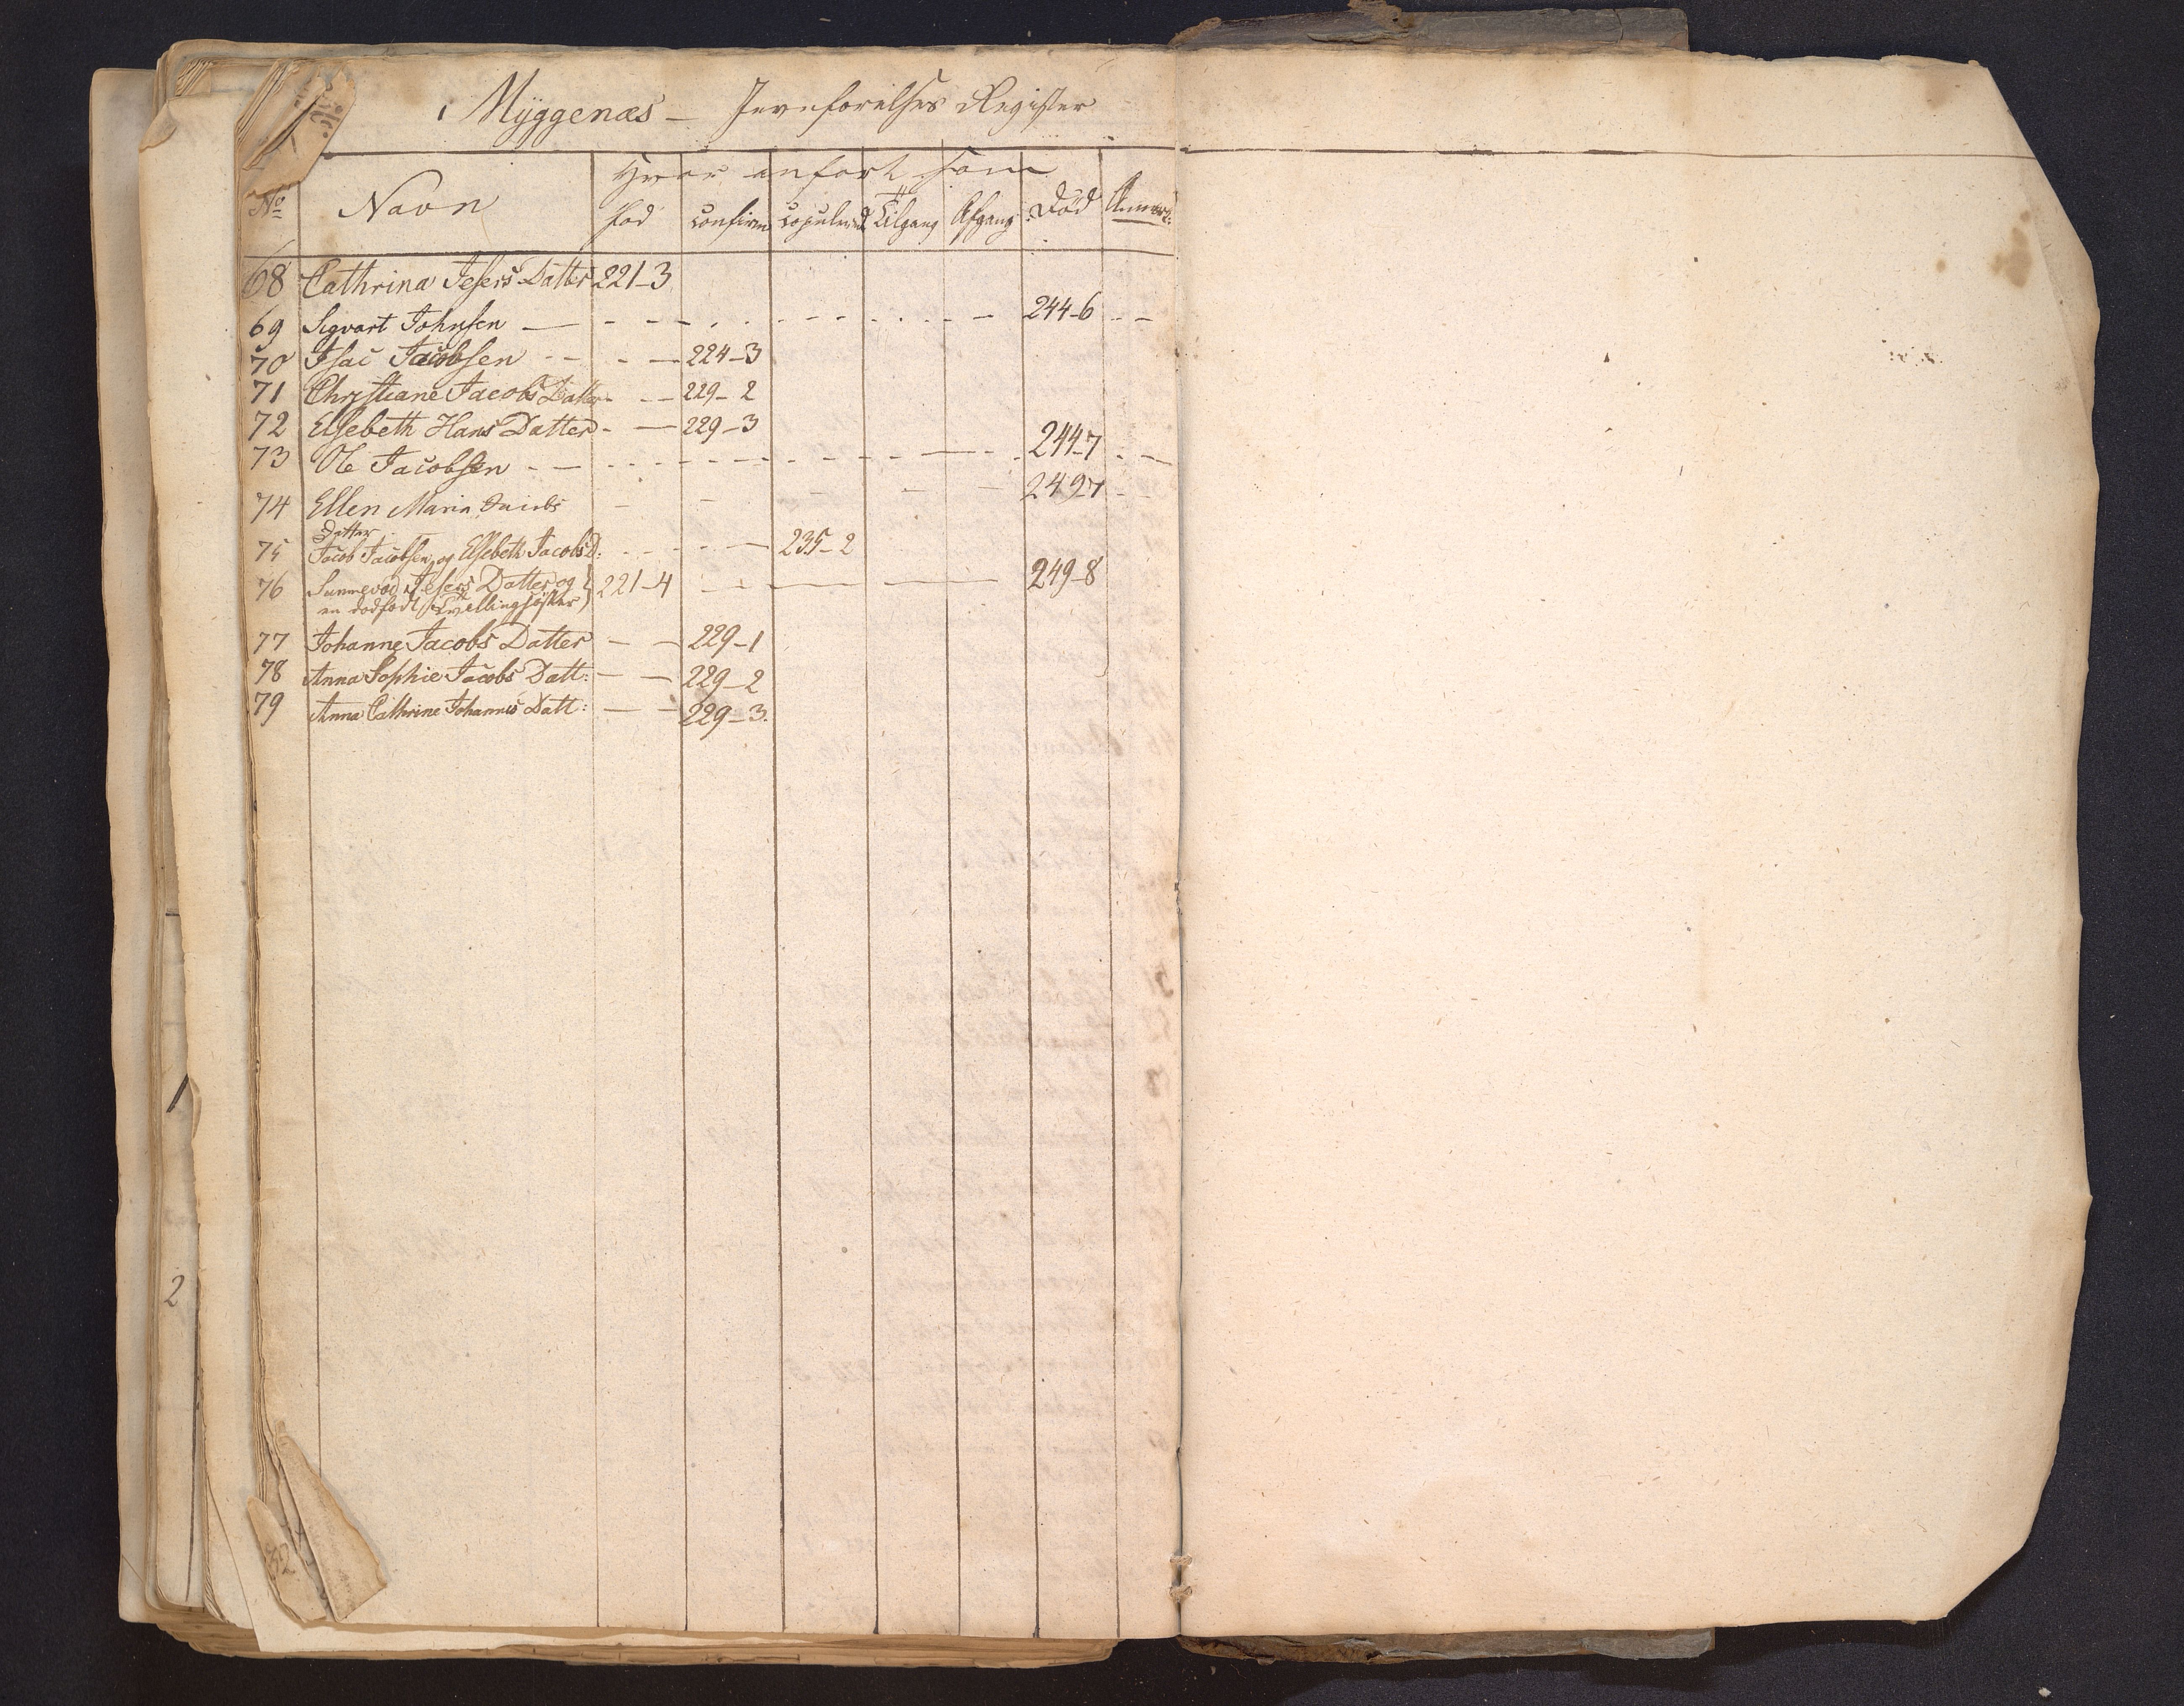 Myggenæs – Jevnførelses Register
Hvor anført som
No Navn Fød Confirm Copuleret Tilgang Afgang Død Anmærk:
68 Cathrina Jesers Datter 221-3
69 Sigvart Johnsen — 244-6
70 Isac Jacobsen — 224-3
71 Christiane Jacobs Datter — 229-2
72 Elsebeth Hans Datter — 229-3
73 Ole Jacobsen — 244-7
74 Ellen Maria Jacobs — 249-7
Datter
75 Jacob Jacobsen og Elsebeth Jacobs D: — 235-2
76 Sunnevæd Jesers Datter og 221-4 — 249-8
en dødfødt Tvillingsøster
77 Johanne Jacobs Datter — 229-1
78 Anna Sophie Jacobs Datt: — 229-2
79 Anna Cathrine Johannes Datt: — 229-3
1
2
32